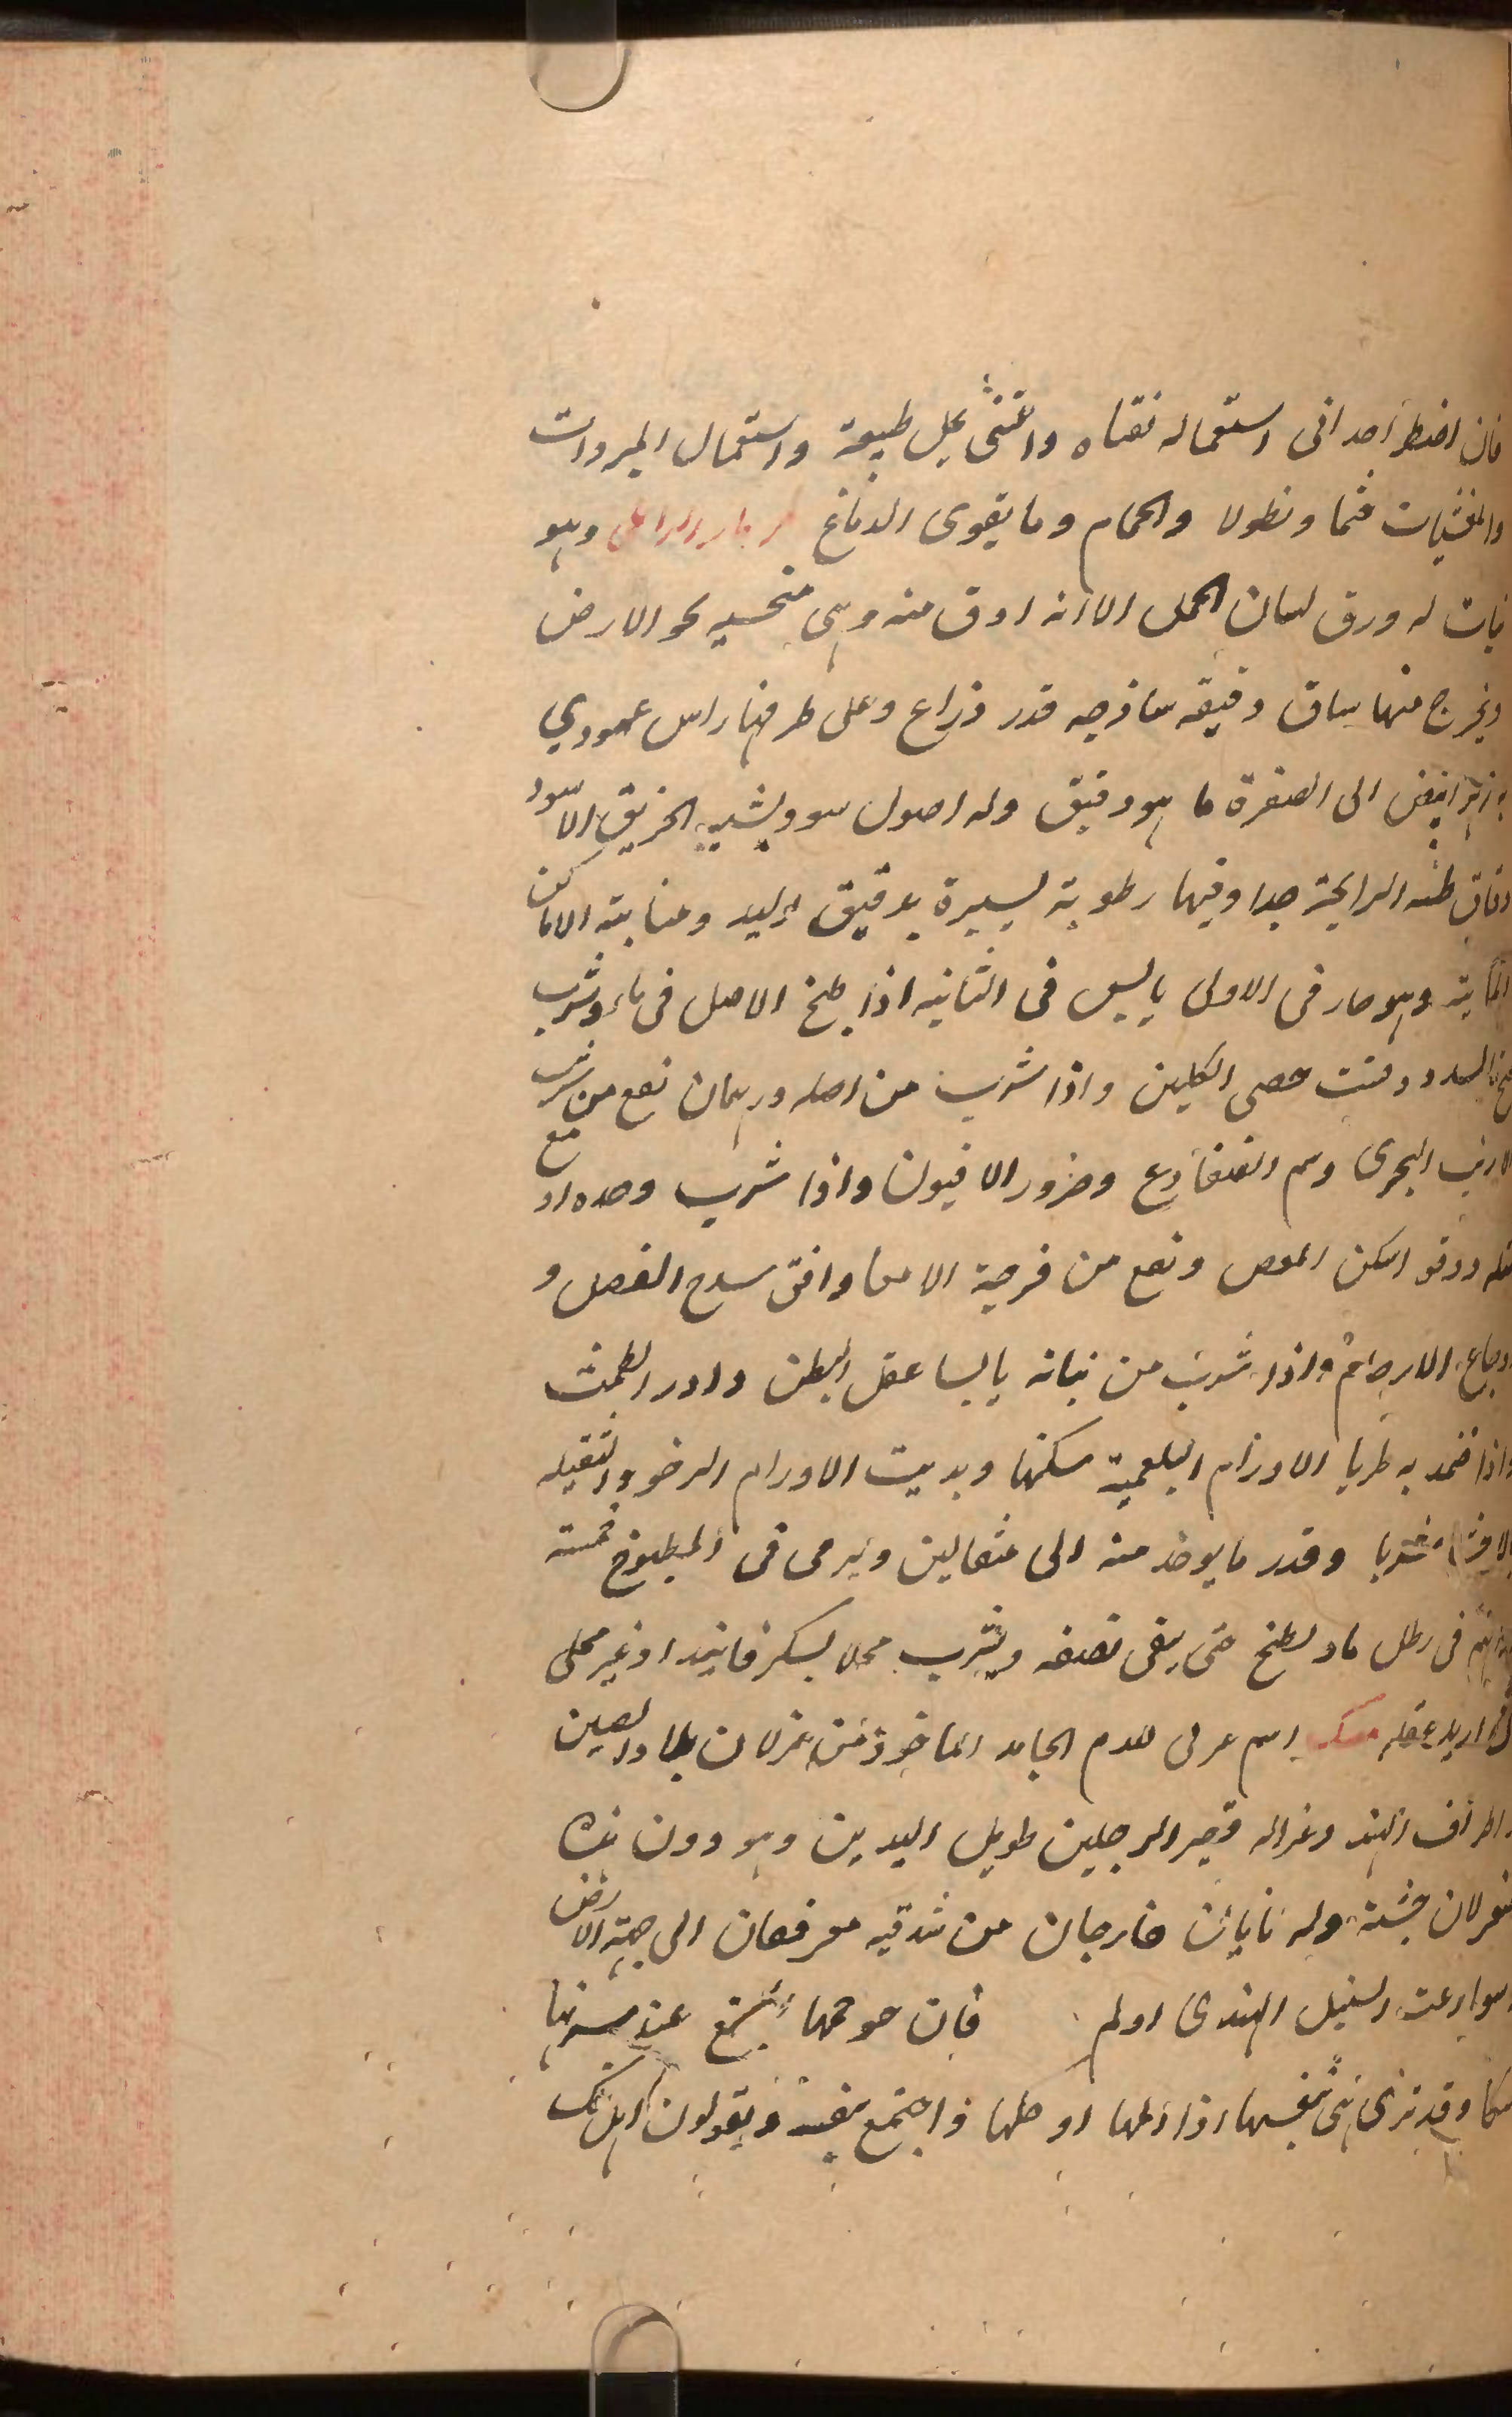 فان اضطر احد الى استعماله نقناه واعتنى بحل طبيعة واستعمال المبردات
والمغشيات شما ونطولا والحمام وما يقوى الدماغ مزمار الراعى وهو
نبات له ورق لسان الحمل الا انه ادق منه وهى منحنيه نحو الارض
ويخرج منها ساق دقيقه ساذجه قدر ذراع وعلى طرفها راس عمودي
وزهر ابيض الى الصفرة ما هو دقيق وله اصول سود يشبه الخربق الاسود
دقاق طيبه الرايحة جدا وفيها رطوبة يسيرة تدبق اليد ومنابته الاماكن
المائية وهو حار فى الاولى يابس فى الثانيه اذا طبخ الاصل فى ماء وشرب
فتح السدد وفتت حصى الكليتين واذا شرب من اصله درهمان نفع من شرب
الارنب البحرى وسم الضفادع وضرر الافيون واذا شرب وحده او مع
مثله دوقو اسكن المغص ونفع من قرحة الامعا وافق العضل و
اوجاع الارحام واذا شرب من نباته يابسا عقل البطن وادر الطمث
واذا ضمد به طريا الاورام البلغمية سكنها الاورام الرخوه والثقيله
شربا وقدر ما يوخذ منه الى مثقالين ويرمى فى المطبوخ خمسة
دراهم فى رطل ماء يطبخ حتى يبقى نصفه ويشرب محلا بسكر فانيد او غير محلى
ان اريد عقله مسك اسم عربى للدم الجامد الماخوذ من غزلان بلاد الصين
واطراف الهند وغزاله قصير الرجلين طويل اليدين وهو دون هذه
الغزلان جثة وله نابان خارجان من شدقيه معرفعان الى جهة الارض
سوا رعت السنبل الهندى اولم فان حو محها يجتمع عند سرتها
مسكا وقد ترى هى بنفسها اذا اكلها او حكها فاجتمع نفسه ويقولون اهل تلك